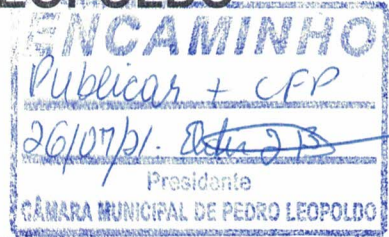 LEOPOLDO
ENCAMINHO
Publicar + CFP
26/07/21.
Presidente
CÂMARA MUNICIPAL DE PEDRO LEOPOLDO